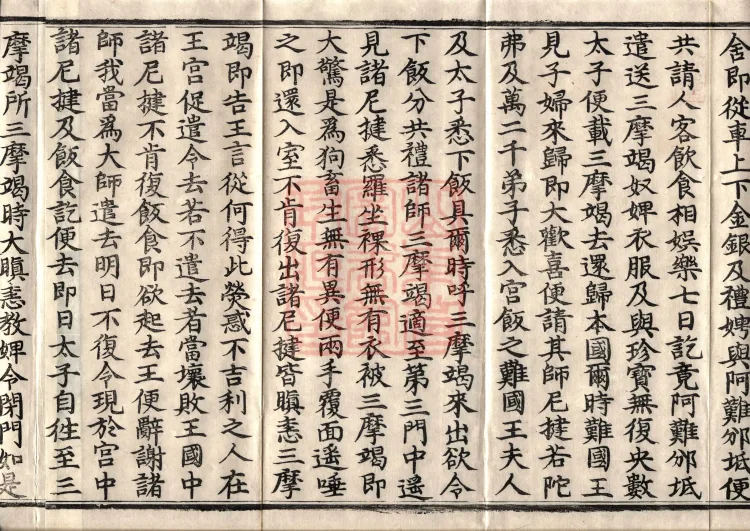 舍即從車上下金銀及禮娉與阿難邠坻便
共請人客飲食相娛樂七日訖竟阿難邠坻
遣送三摩竭奴婢衣服及與珍寶無復央數
太子便載三摩竭去還歸本國爾時難國王
見子婦來歸即大歡喜便請其師尼揵若陀
弗及萬二千弟子悉入宮飯之難國王夫人
及太子悉下飯具爾時呼三摩竭來出欲令
下飯分共禮諸師三摩竭適至第三門中遙
見諸尼揵悉羅坐裸形無有衣被三摩竭即
大驚是為狗畜生無有異便兩手覆面遙唾
之即還入室不肯復出諸尼揵皆瞋恚三摩
竭即告王言從何得此熒惑不吉利之人在
王宮促遣令去若不遣去者當壞敗王國中
諸尼揵不肯復飯食即欲起去王便辭謝諸
師我當為大師遣去明日不復令現於宮中
諸尼揵及飯食訖便去即日太子自往至三
摩竭所三摩竭時大瞋恚教婢令閉門如是